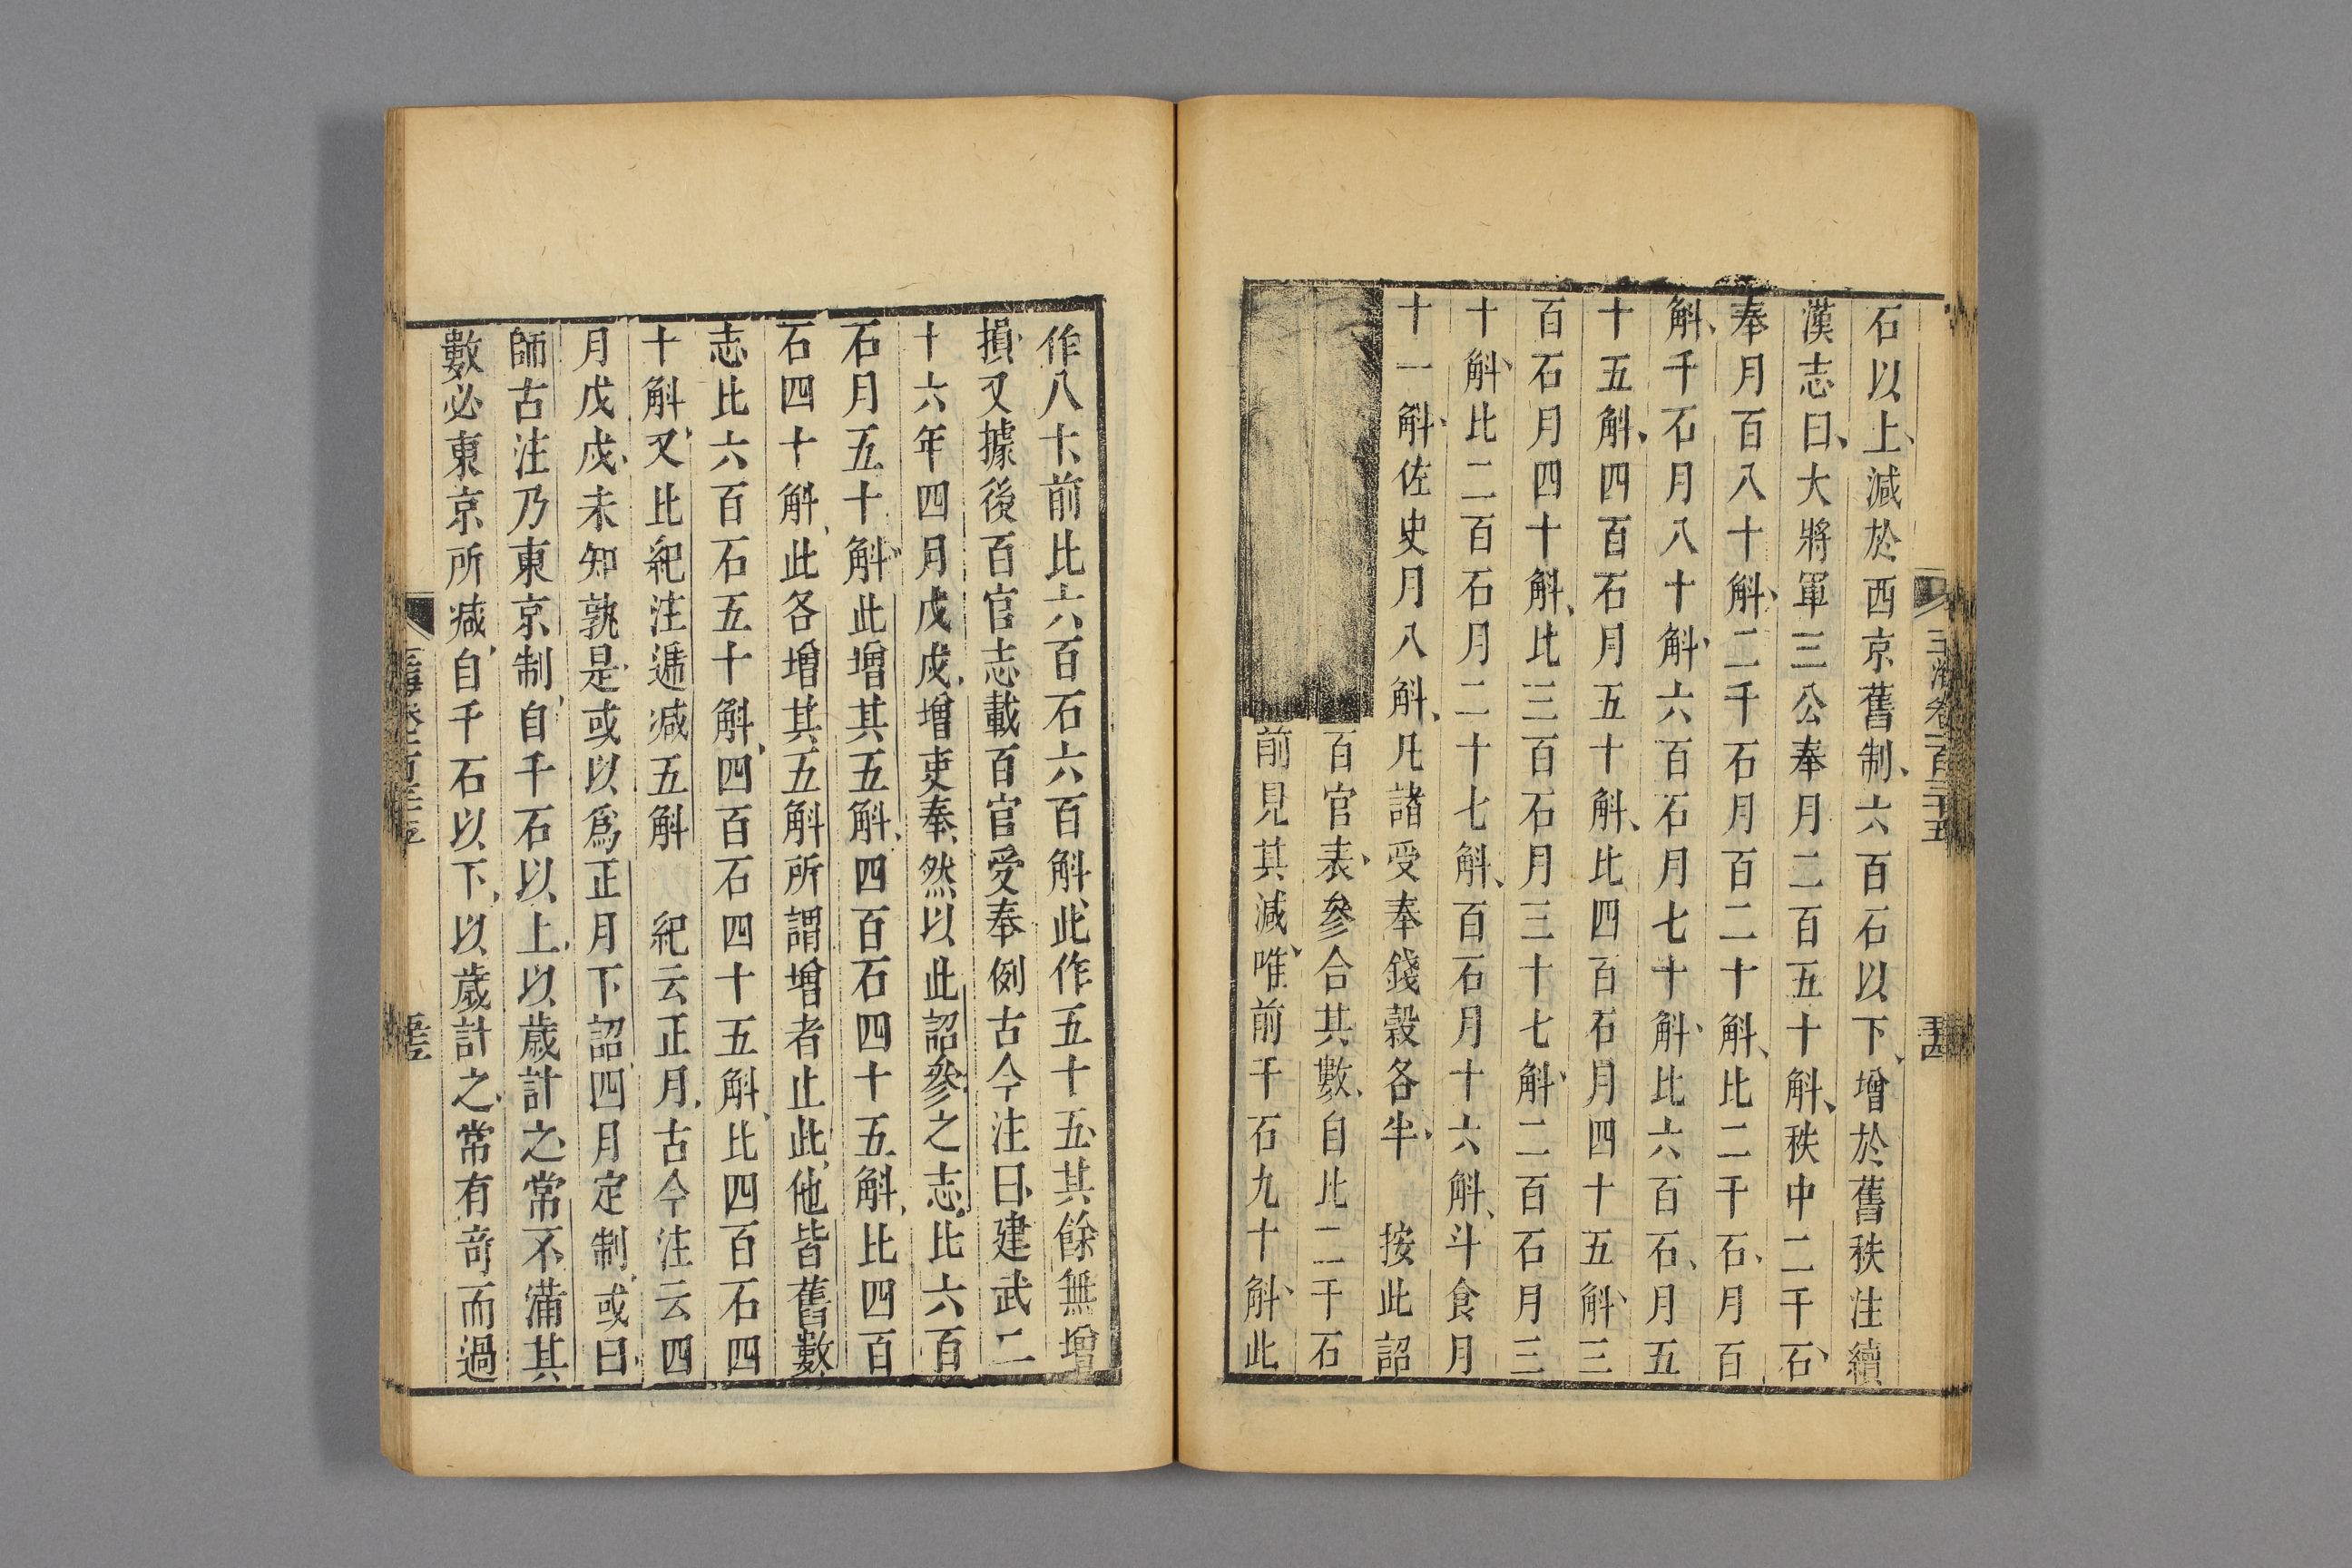 石以上、減於西京舊制、六百石以下、增於舊秩注續
漢志曰、大將軍三公奉月二百五十斛、秩中二千石、
奉月百八十斛、二千石月百二十斛、比二千石、月百
斛、千石月八十斛、六百石月七十斛、比六百石、月五
十五斛、四百石月五十斛、比四百石月四十五斛、三
百石月四十斛、比三百石月三十七斛、二百石月三
十斛、比二百石月二十七斛、百石月十六斛、斗食月
十一斛、佐史月八斛、凡諸受奉錢穀各半、　按此詔
百官表、參合其數、自比二千石
前見其減、唯前千石九十斛、此
作八十、前比六百石六百斛、此作五十五、其餘無增
損、又據後百官志載百官受奉例古今注曰、建武二
十六年四月戊戌、增吏奉、然以此詔參之志、比六百
石月五十斛、此增其五斛、四百石四十五斛、比四百
石四十斛、此各增其五斛所謂增者止此、他皆舊數
志比六百石五十斛、四百石四十五斛、比四百石四
十斛、又比紀注遞減五斛　紀云正月、古今注云四
月戊戌、未知孰是、或以爲正月下詔、四月定制、或曰、
師古注乃東京制、自千石以上、以歲計之、常不滿其
數必東京所減、自千石以下、以歲計之、常有奇而過